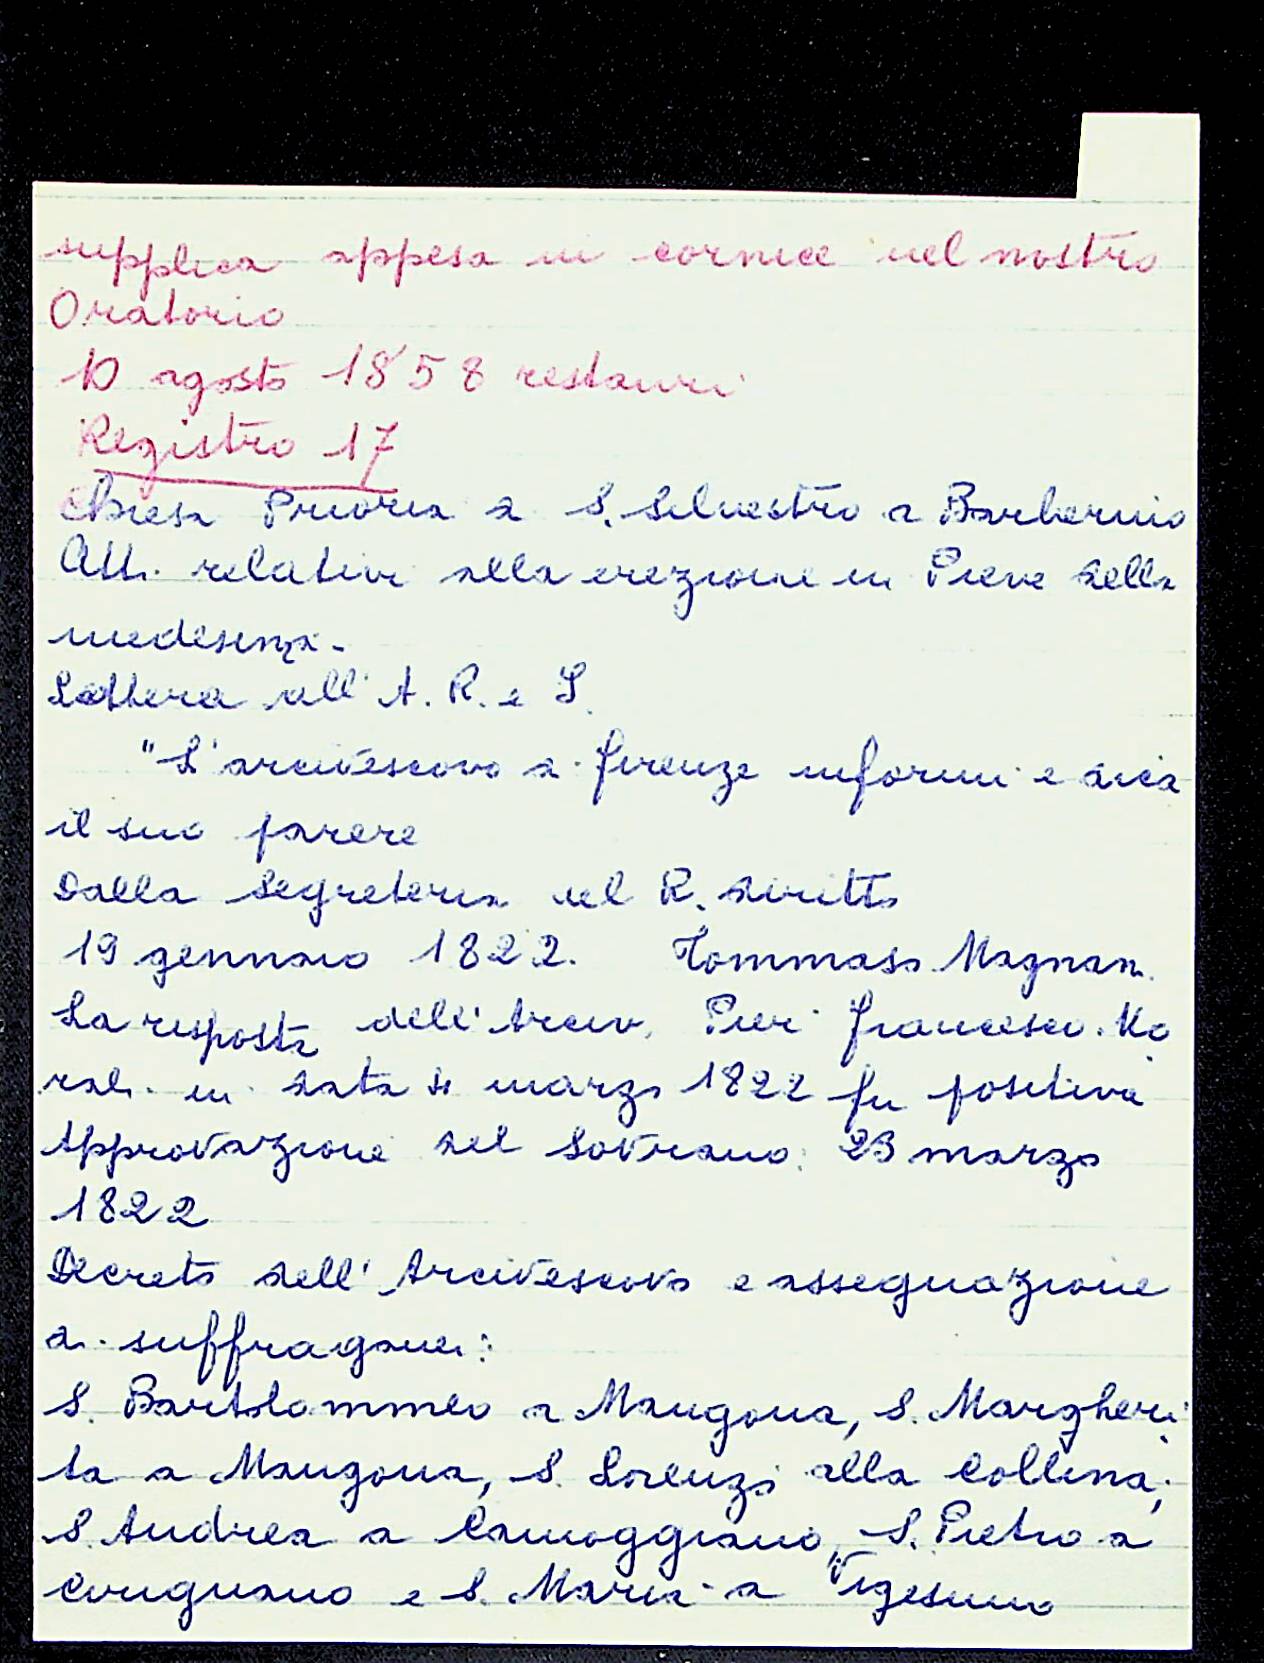 supplica appesa in cornice nel nostro
Oratorio
10 agosto 1858 restauri
Registro 17
Chiesa Prioria di S. Silvestro a Barberino
Atti relativi alla erezione in Pieve della
medesima.
Lettera all' A. R. e I.
"L'arcivescovo di firenze informi e dica
il suo parere
Dalla Segreteria del R. diritto
19 gennaio 1822. Tommaso Magnani
La risposta dell'Arciv. Pier francesco Mo
rali in data 4 marzo 1822 fu positiva
Approvazione del Sovrano: 23 marzo
1822
Decreto dell' Arcivescovo e assegnazione
di suffraganei:
S. Bartolommeo a Mangona, S. Margheri
ta a Mangona, S. Lorenzo alla Collina,
S. Andrea a Camoggiano, S. Pietro a
Cirignano e S. Maria a Vigesimo